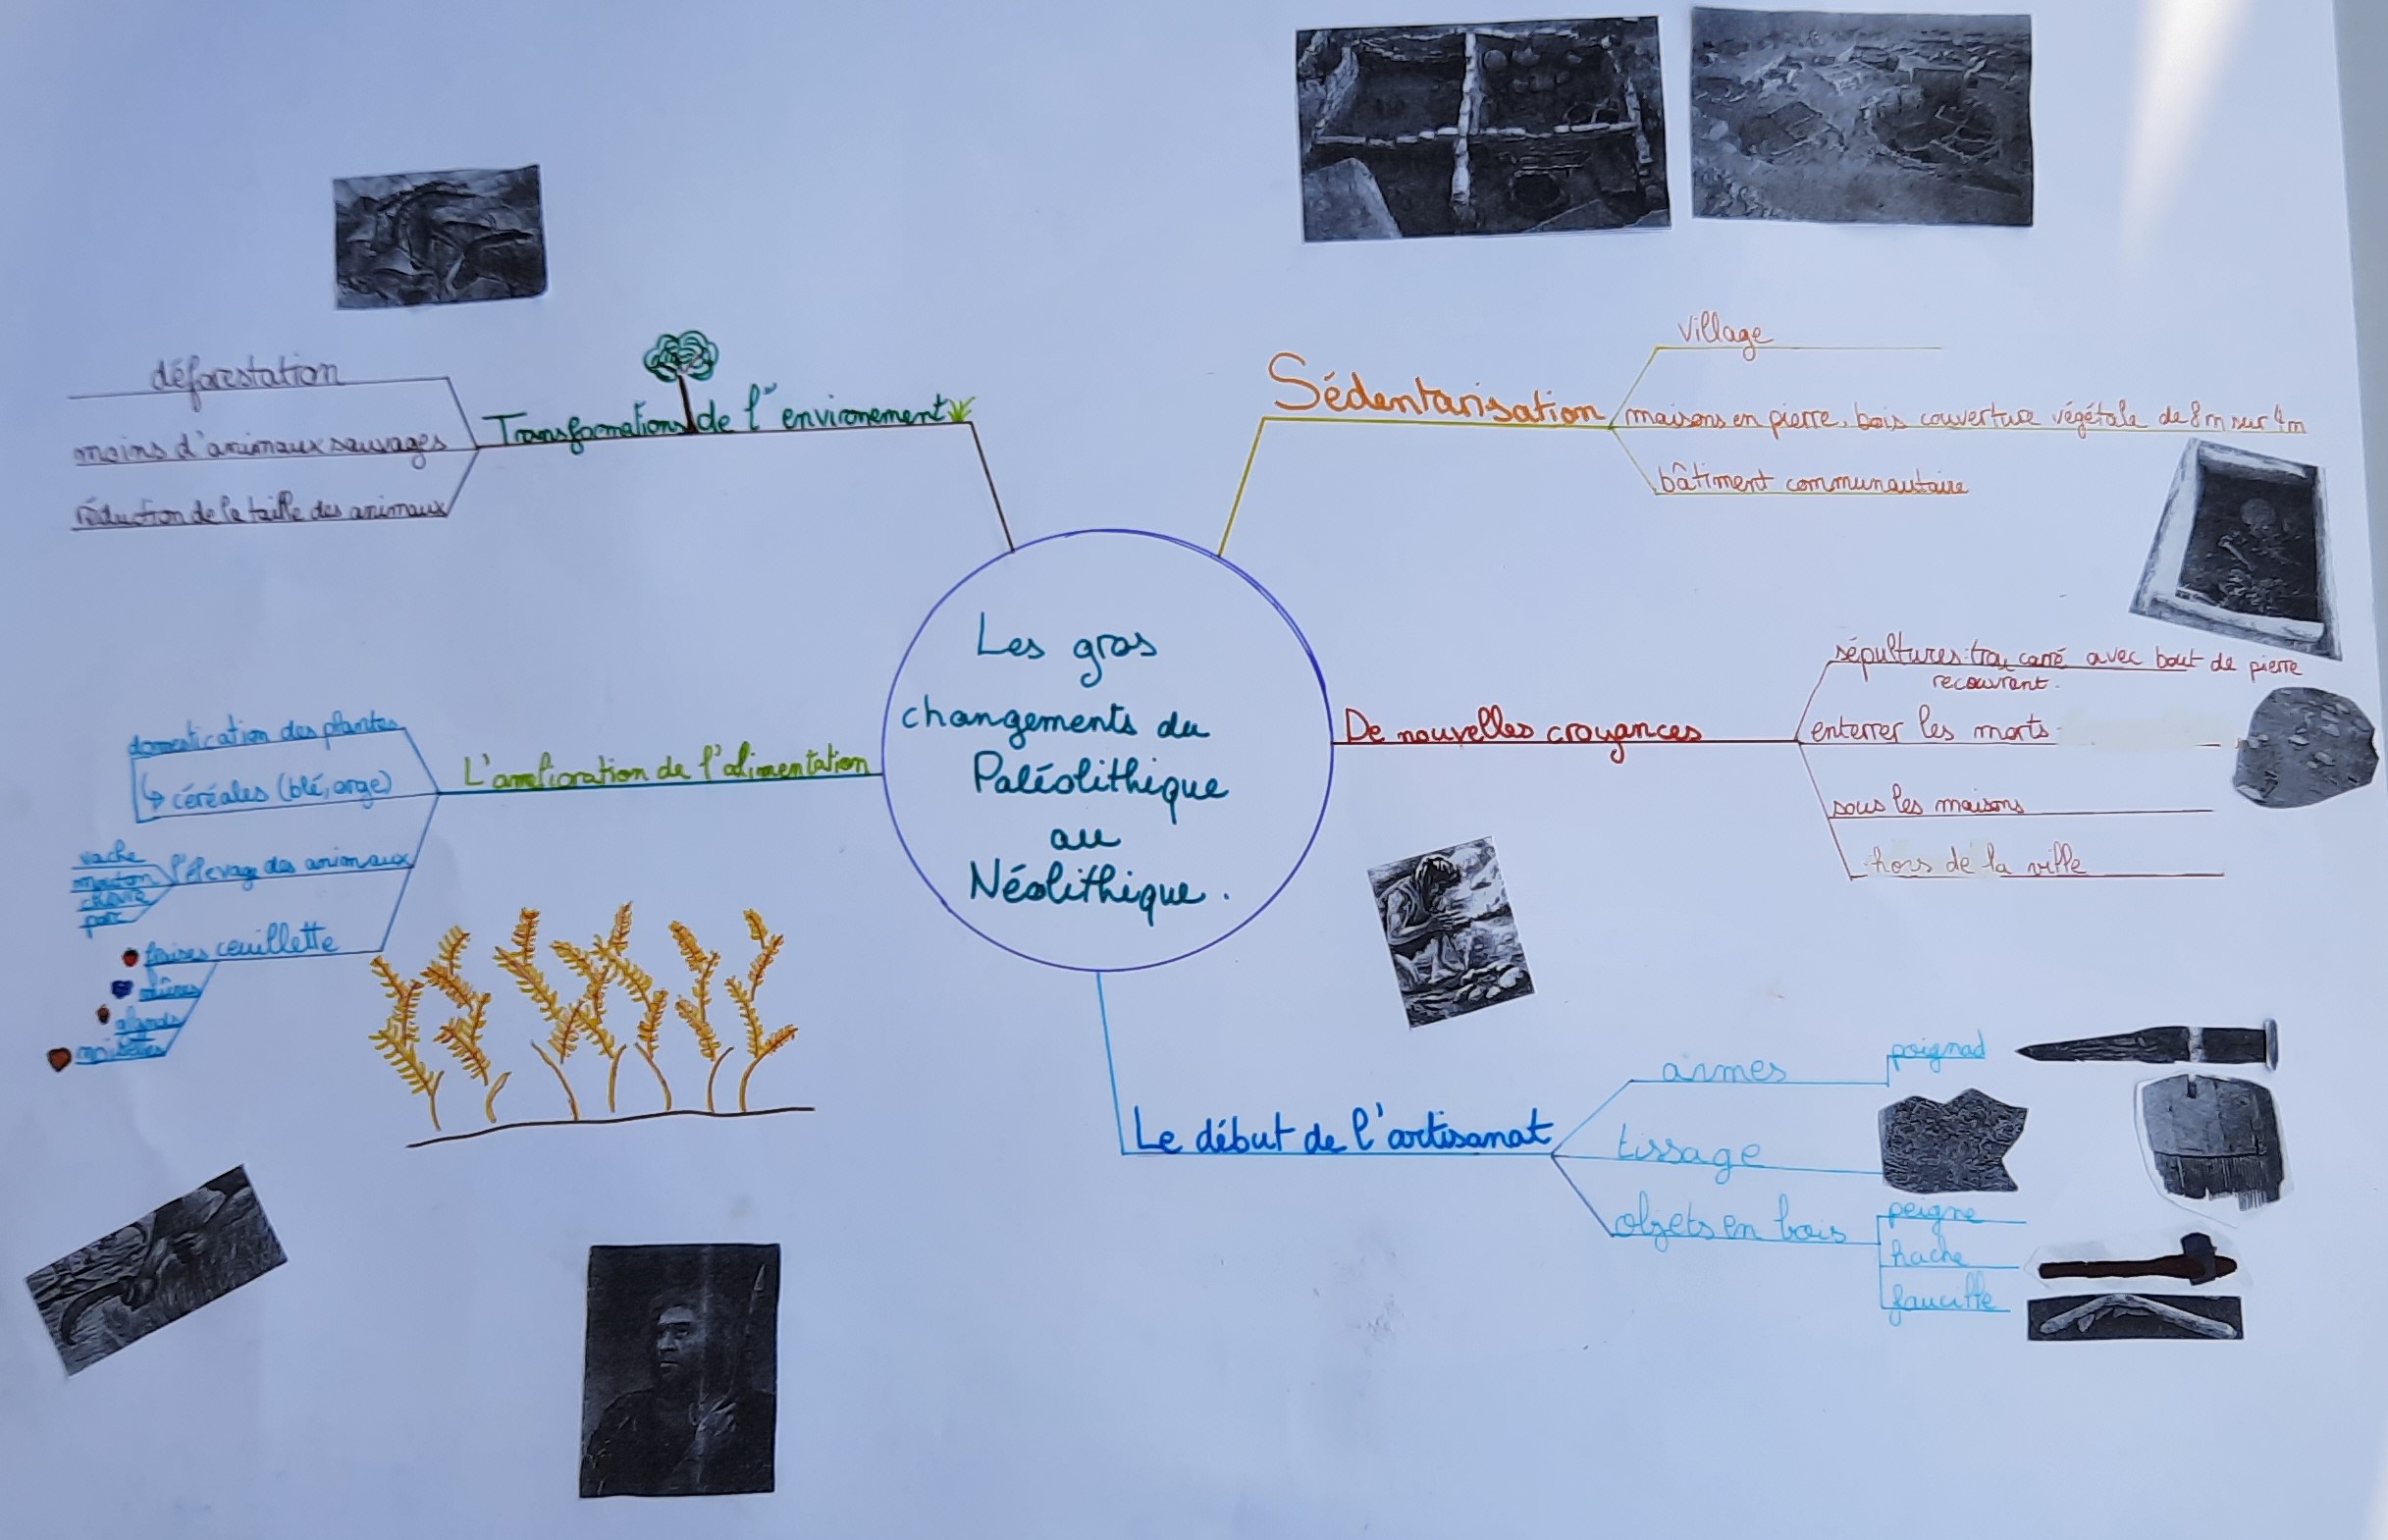 Les gros
changements du
Paléolithique
au
Néolithique.
Transformations de l'environement
déforestation
moins d'animaux sauvages
réduction de la taille des animaux
Sédentarisation
village
maisons en pierre, bois couverture végétale de 8m sur 4m
bâtiment communautaire
De nouvelles croyances
sépultures: trou carré avec bout de pierre
recouvrant.
enterrer les morts
sous les maisons
hors de la ville
Le début de l'artisanat
armes
poignad
tissage
objets en bois
peigne
hache
faucille
L'amélioration de l'alimentation
domestication des plantes
↳ céréales (blé, orge)
l'élevage des animaux
vache
mouton
chèvre
porc
ceuillette
fraises
mûres
glands
noisettes